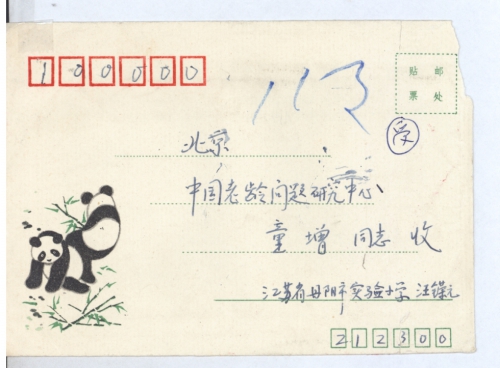 100000
113
贴 邮
票 处
受
北京
中国老龄问题研究中心
童增 同志 收
江苏省丹阳市实验小学 汪
212300